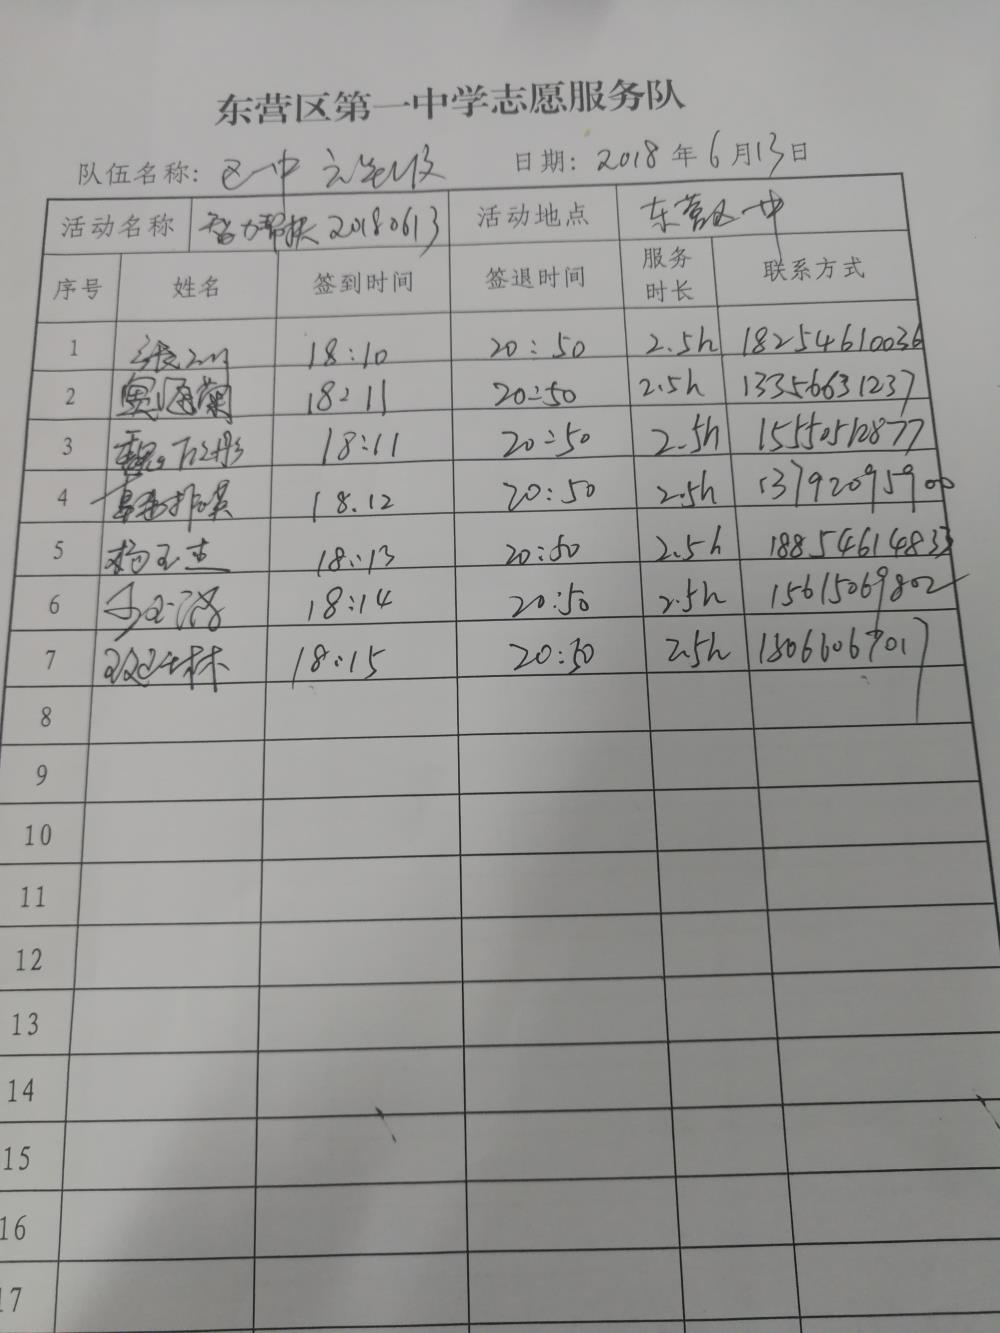 东营区第一中学志愿服务队
队伍名称: 区一中 日期: 2018年6月13日
活动名称 智力帮扶20180613 活动地点 东营区一中
序号 姓名 签到时间 签退时间 服务时长 联系方式
1 18:10 20:50 2.5h 18254610036
2 18:11 20:50 2.5h 13356631237
3 18:11 20:50 2.5h 15550512877
4 18.12 20:50 2.5h 13792095900
5 杨玉杰 18:13 20:50 2.5h 18854614833
6 18:14 20:50 2.5h 15615069802
7 18:15 20:50 2.5h
8
9
10
11
12
13
14
15
16
17